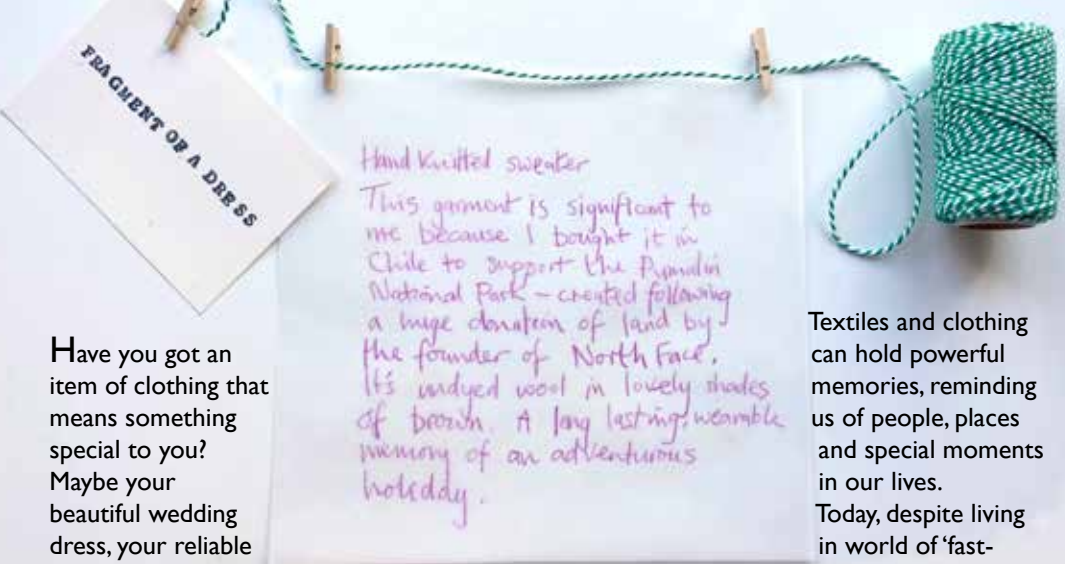 FRAGMENT OF A DRESS
Hand Knitted sweater
This garment is significant to
me because I bought it in
Chile to support the Pumalin
National Park - created following
a huge donation of land by
the founder of North Face.
It's undyed wool in lovely shades
of brown. A long lasting, wearable
memory of an adventurous
holiday.
Have you got an
item of clothing that
means something
special to you?
Maybe your
beautiful wedding
dress, your reliable
Textiles and clothing
can hold powerful
memories, reminding
us of people, places
and special moments
in our lives.
Today, despite living
in world of ‘fast-